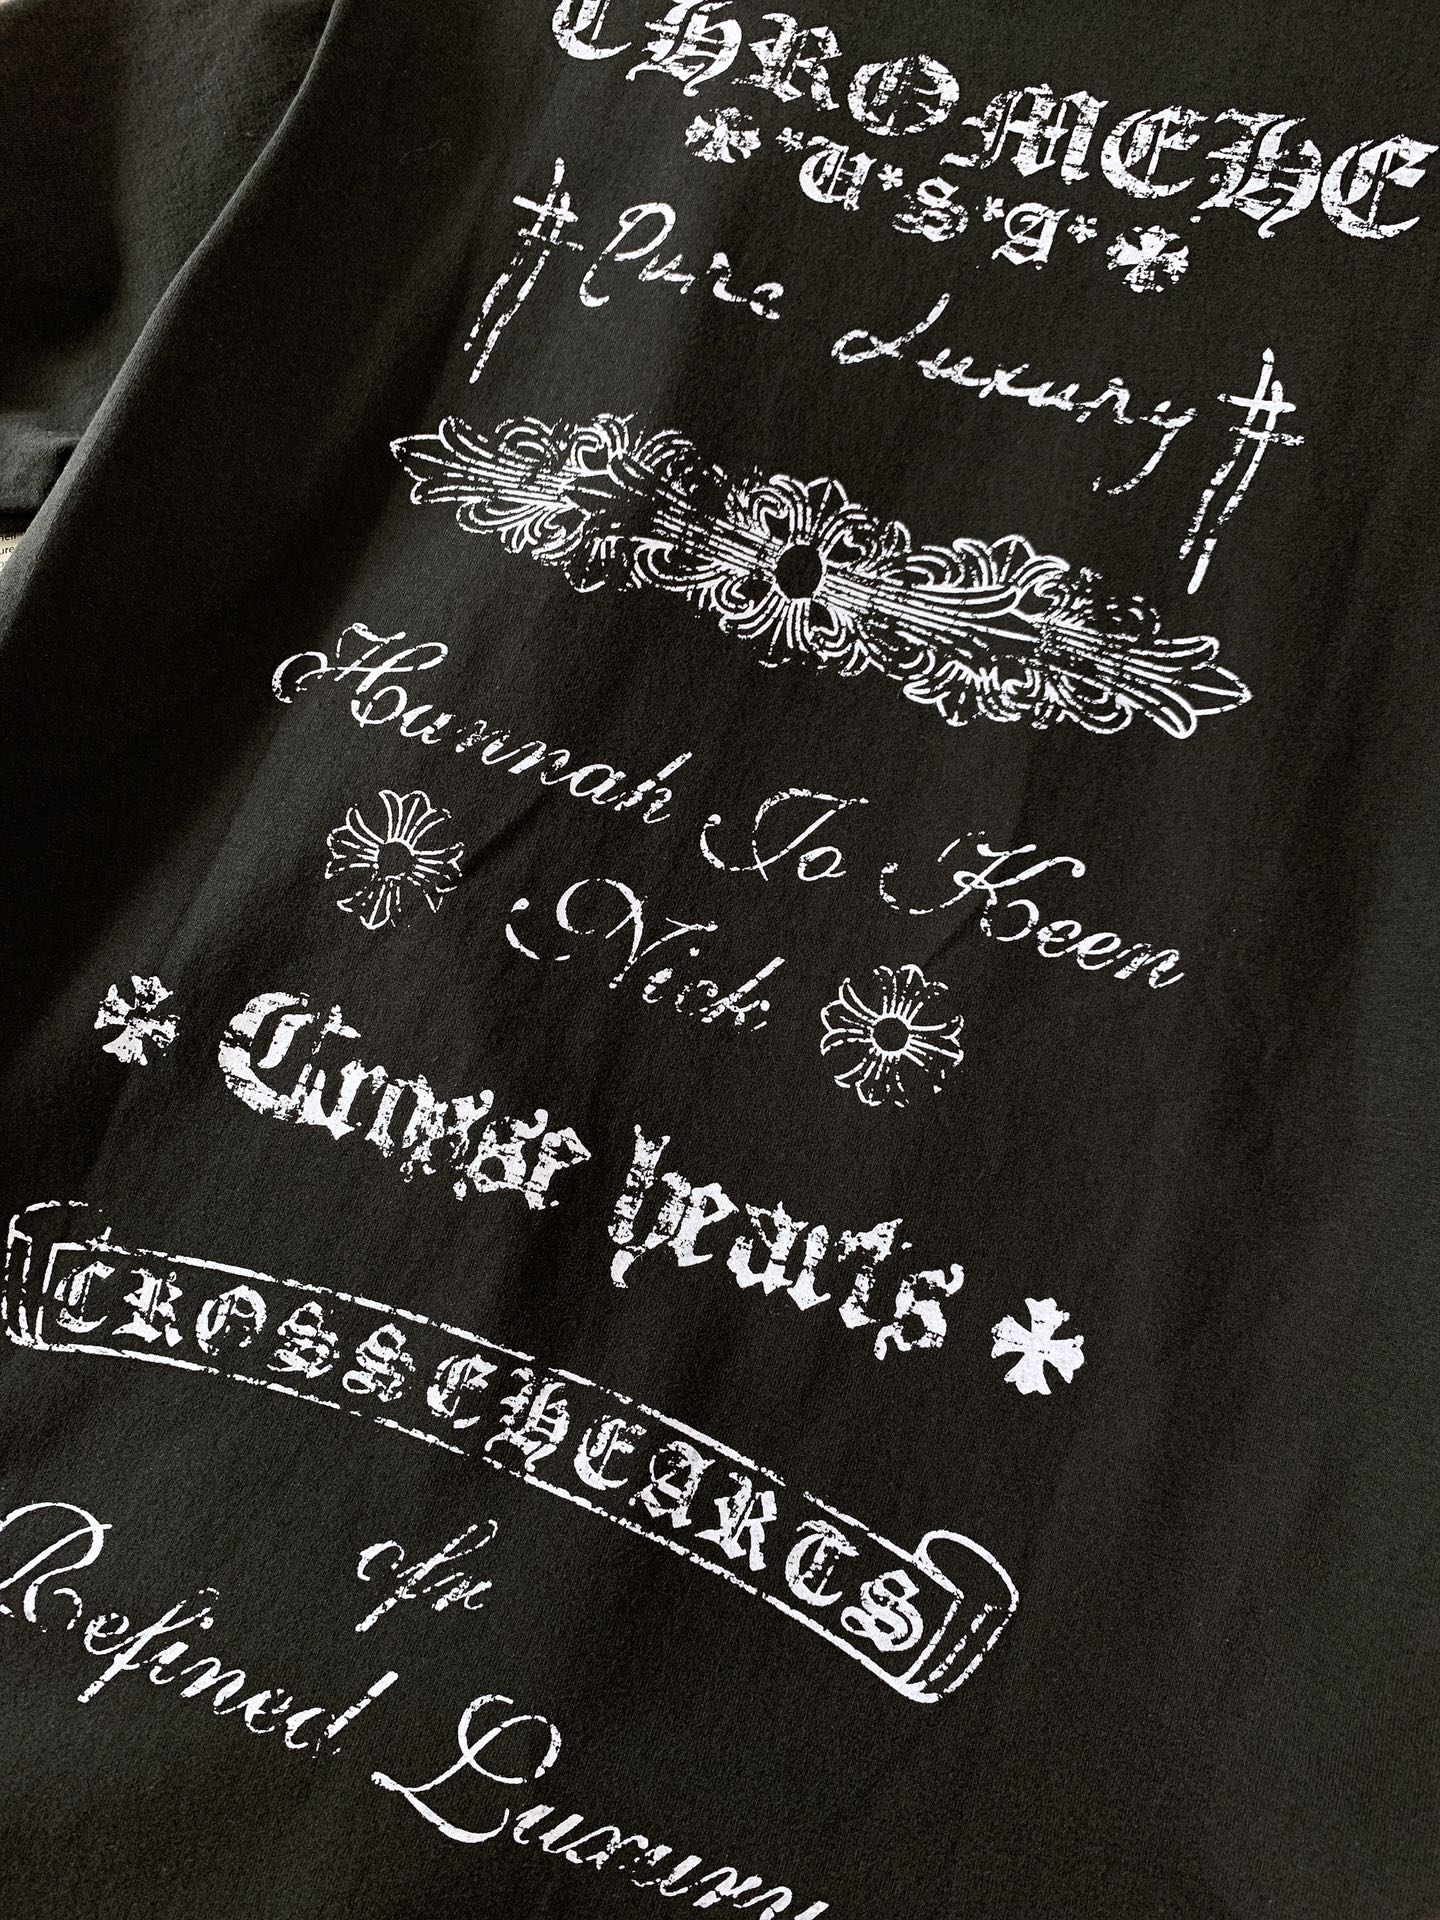 CHROMEHE
*U*S*A*
Pure Luxury
Hannah To Keen
Nick
Crosse hearts
CROSSEHEARTS
Refined Luxury